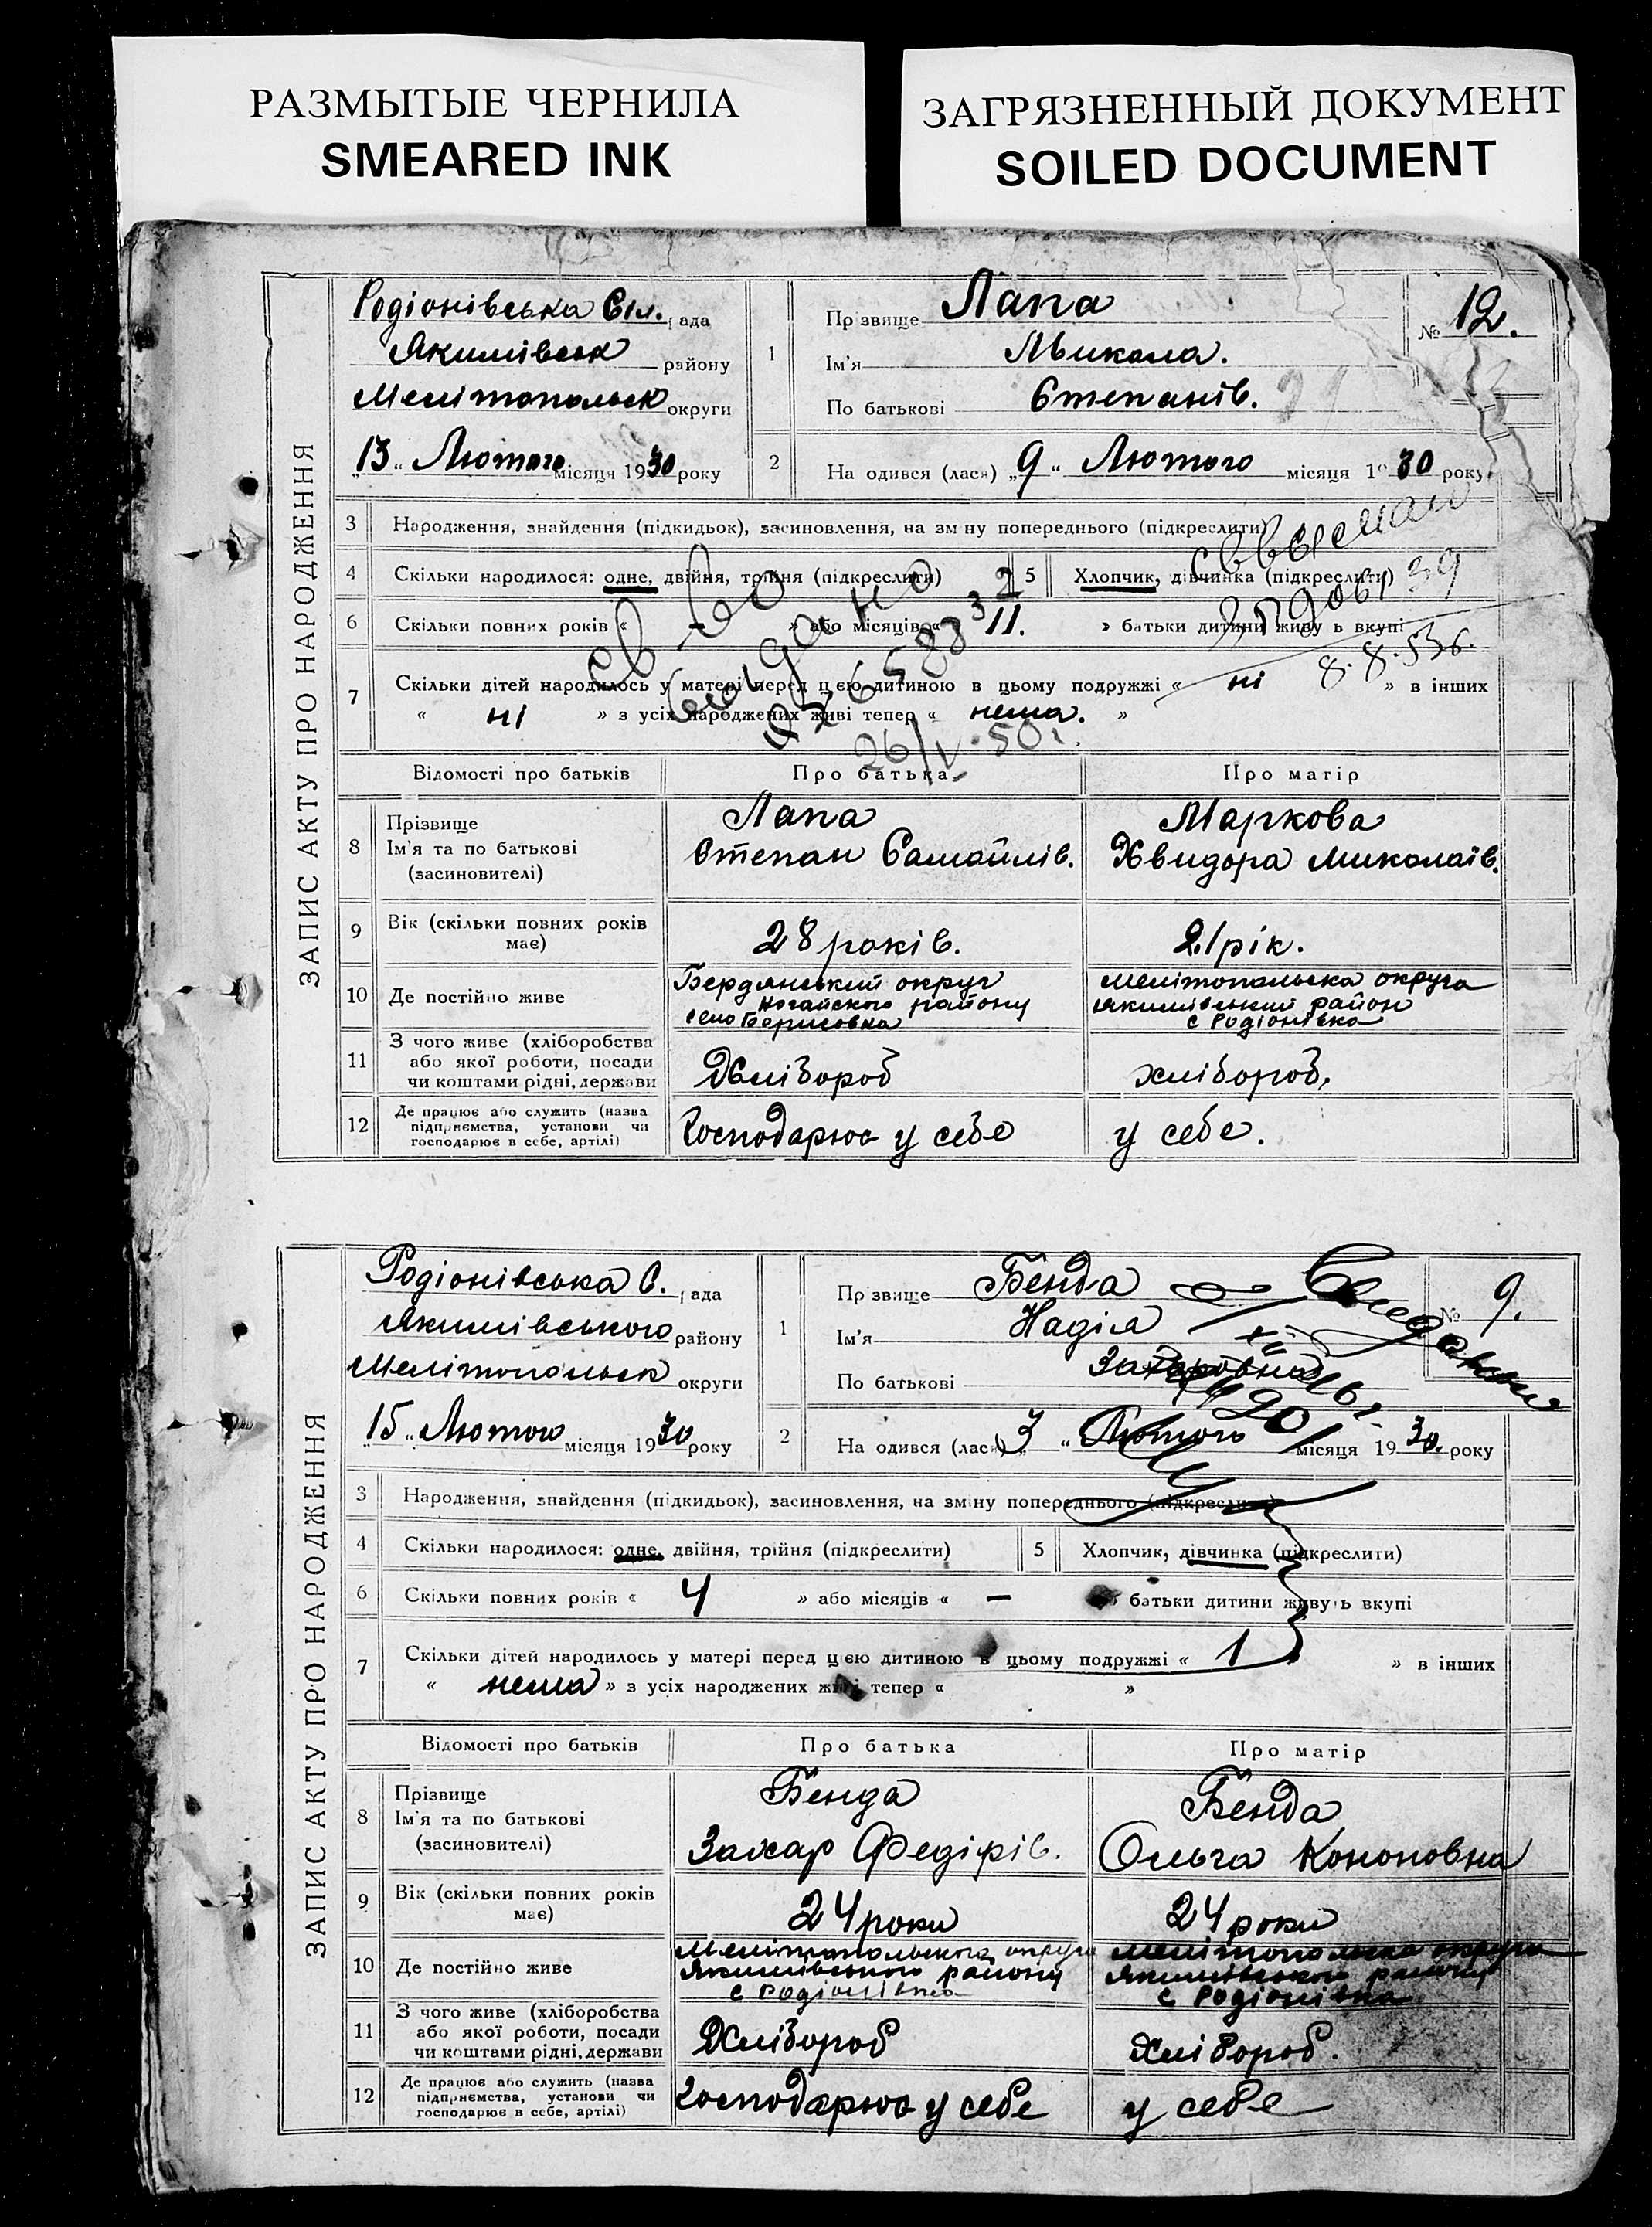 РАЗМЫТЫЕ ЧЕРНИЛА
SMEARED INK
ЗАГРЯЗНЕННЫЙ ДОКУМЕНТ
SOILED DOCUMENT
ЗАПИС АКТУ ПРО НАРОДЖЕННЯ
Родіонівська Сіл. рада
Якимівськ району
Мелітопольск округи
"13" Лютого місяця 1930 року
1
Прізвище Лапа
№ 12.
Ім'я Микола.
По батькові Степанів.
2
На одився (лася) "9" Лютого місяця 1930 року
3 Народження, знайдення (підкидьок), засиновлення, на зміну попереднього (підкреслити)
4 Скільки народилося: одне, двійня, трійня (підкреслити)
5 Хлопчик, дівчинка (підкреслити)
6 Скільки повних років « – » або місяців « 11. » батьки дитини живуть вкупі
7 Скільки дітей народилось у матері перед цією дитиною в цьому подружжі « ні » в інших
« ні » з усіх народжених живі тепер « нема. »
св-во
выдано
26/V-50г.
8.8.536.
Відомості про батьків
Про батька
Про матір
8 Прізвище
Ім'я та по батькові
(засиновителі)
Лапа
Степан Самойлів.
Маркова
Хвидора Миколаїв.
9 Вік (скільки повних років має)
28 років.
21 рік.
10 Де постійно живе
Бердянський округ
Ногайского району
село Борисовка
Мелітопольска округа
Якимівський район
с Родіонівка
11 З чого живе (хліборобства
або якої роботи, посади
чи коштами рідні, держави
Хлібороб
хлібороб.
12 Де працює або служить (назва
підприємства, установи чи
господарює в себе, артілі)
Господарює у себе
у себе.
ЗАПИС АКТУ ПРО НАРОДЖЕННЯ
Родіонівська С. рада
Якимівського району
Мелітопольск округи
"15" Лютого місяця 1930 року
1
Прізвище Бенда
№ 9.
Ім'я Надія
По батькові Захаровна
2
На одився (лася) "3" Лютого місяця 1930. року
3 Народження, знайдення (підкидьок), засиновлення, на зміну попереднього (підкреслити)
4 Скільки народилося: одне, двійня, трійня (підкреслити)
5 Хлопчик, дівчинка (підкреслити)
6 Скільки повних років « 4 » або місяців « – » батьки дитини живуть вкупі
7 Скільки дітей народилось у матері перед цією дитиною в цьому подружжі « 1 » в інших
« нема » з усіх народжених живі тепер « »
Відомості про батьків
Про батька
Про матір
8 Прізвище
Ім'я та по батькові
(засиновителі)
Бенда
Захар Федірів.
Бенда
Ольга Кононовна
9 Вік (скільки повних років має)
24 роки
24 роки
10 Де постійно живе
Мелітопольского округа
Якимівського району
с Родіонівка
Мелітопольска округа
Якимівського району
с Родіонівка
11 З чого живе (хліборобства
або якої роботи, посади
чи коштами рідні, держави
Хлібороб
Хлібороб.
12 Де працює або служить (назва
підприємства, установи чи
господарює в себе, артілі)
Господарює у себе
у себе